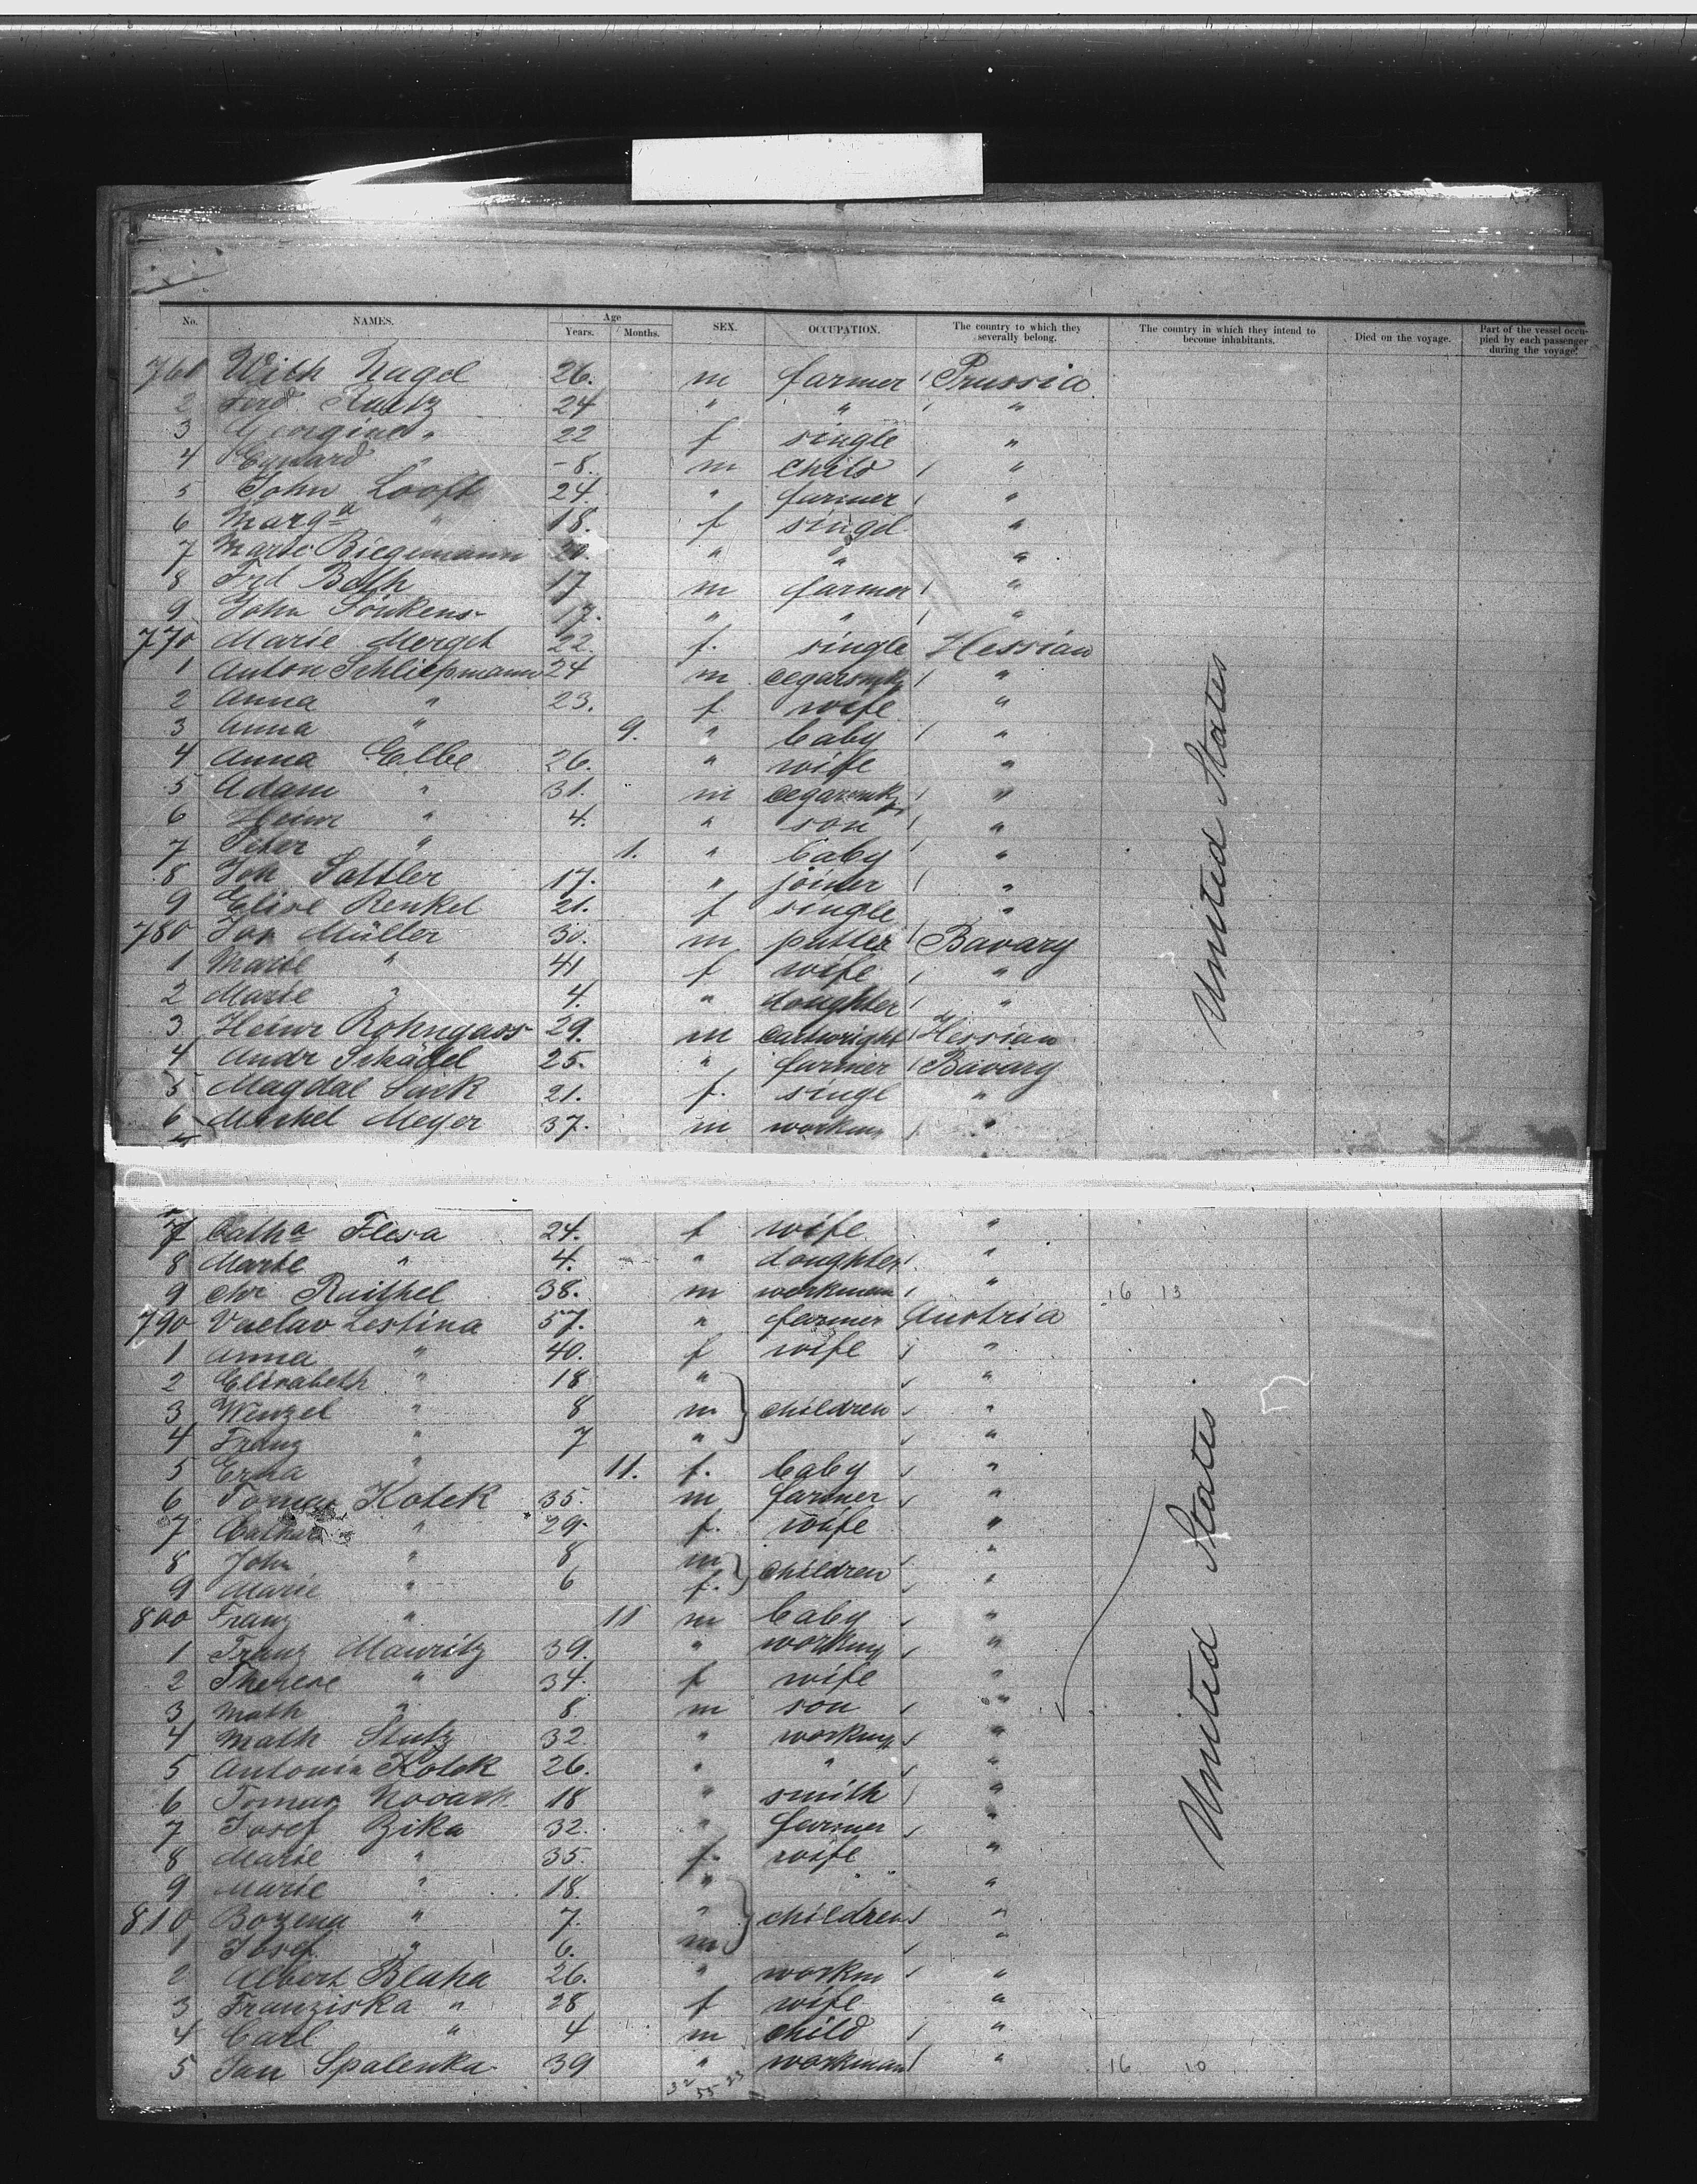 No. NAMES. Age Years. Months. SEX. OCCUPATION. The country to which they severally belong. The country in which they intend to become inhabitants. Died on the voyage. Part of the vessel occupied by each passenger during the voyage.
760 Wilh Nagel 26. m farmer Prussia
2 Ferd Stultz 24 " " "
3 Georgine " 22 f single "
4 Eduard -8. m child "
5 John Looft 24. " farmer "
6 Marga " 18. f singel "
7 Marie Biegemann 20. " " "
8 Frd Beth 17 m farmer "
9 John Sönkens 17. " " "
770 Marie Mergel 22. f. single Hessian
1 Anton Schliepmann 24 m cegarsmk "
2 Anna " 23. f. wife "
3 Anna " 9. " baby "
4 Anna Elbe 26. " wife "
5 Adam " 31. m cegarsmk "
6 Heinr " 4. " son "
7 Peter " 1. " baby "
8 Joh Sattler 17. " joiner "
9 Elise Renkel 21. f single "
780 Jos Müller 30. m putter Bavary
1 Marie " 41 f wife "
2 Marie " 4. " doughter "
3 Heinr Rohngass 29. m cartwright Hessian
4 Andr Schädel 25. " farmer Bavary
5 Magdal Sack 21. f. singl "
6 Michel Meyer 37. m workm "
United States
7 Catha Flesa 24. f wife "
8 Marie " 4. " doughter "
9 Chr Raithel 38. m workman " 16 13
790 Vaclav Lestina 57. " farmer Austria
1 Anna " 40. f wife "
2 Elisabeth " 18 " "
3 Wenzel " 8 m children "
4 Franz " 7 " "
5 Erna " 11. f. baby "
6 Tomas Kotek 35. m farmer "
7 Cathar " 29. f. wife "
8 John " 8 m "
9 Marie " 6 f. children "
800 Franz " 11 m baby "
1 Franz Mauritz 39. " workm "
2 Therese " 34. f wife "
3 Math " 8. m son "
4 Math Stutz 32. " workm "
5 Antonin Kotek 26. " " "
6 Tomas Novack 18 " smith "
7 Josef Zika 32. " farmer "
8 Marie " 35. f. wife "
9 Marie " 18. " "
810 Bozena " 7. " children "
1 Josef " 6. m "
2 Albert Blaha 26. " workm "
3 Franziska " 28 f wife "
4 Carl " 4 m child "
5 Jan Spalenka 39 " workman " 16 10
United States
32 55 23